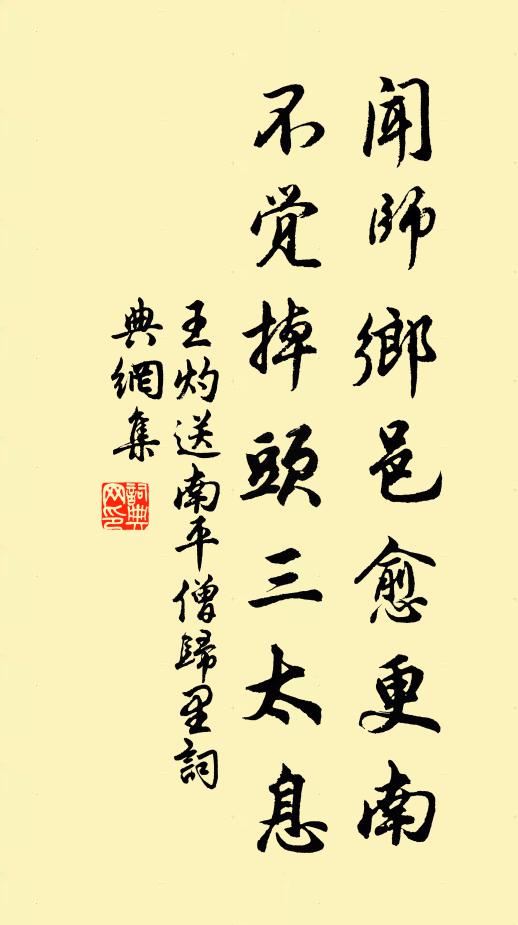 闻師鄉邑愈更南
不觉掉頭三太息
王灼送南平僧歸里詞
典網集
詞典
网印